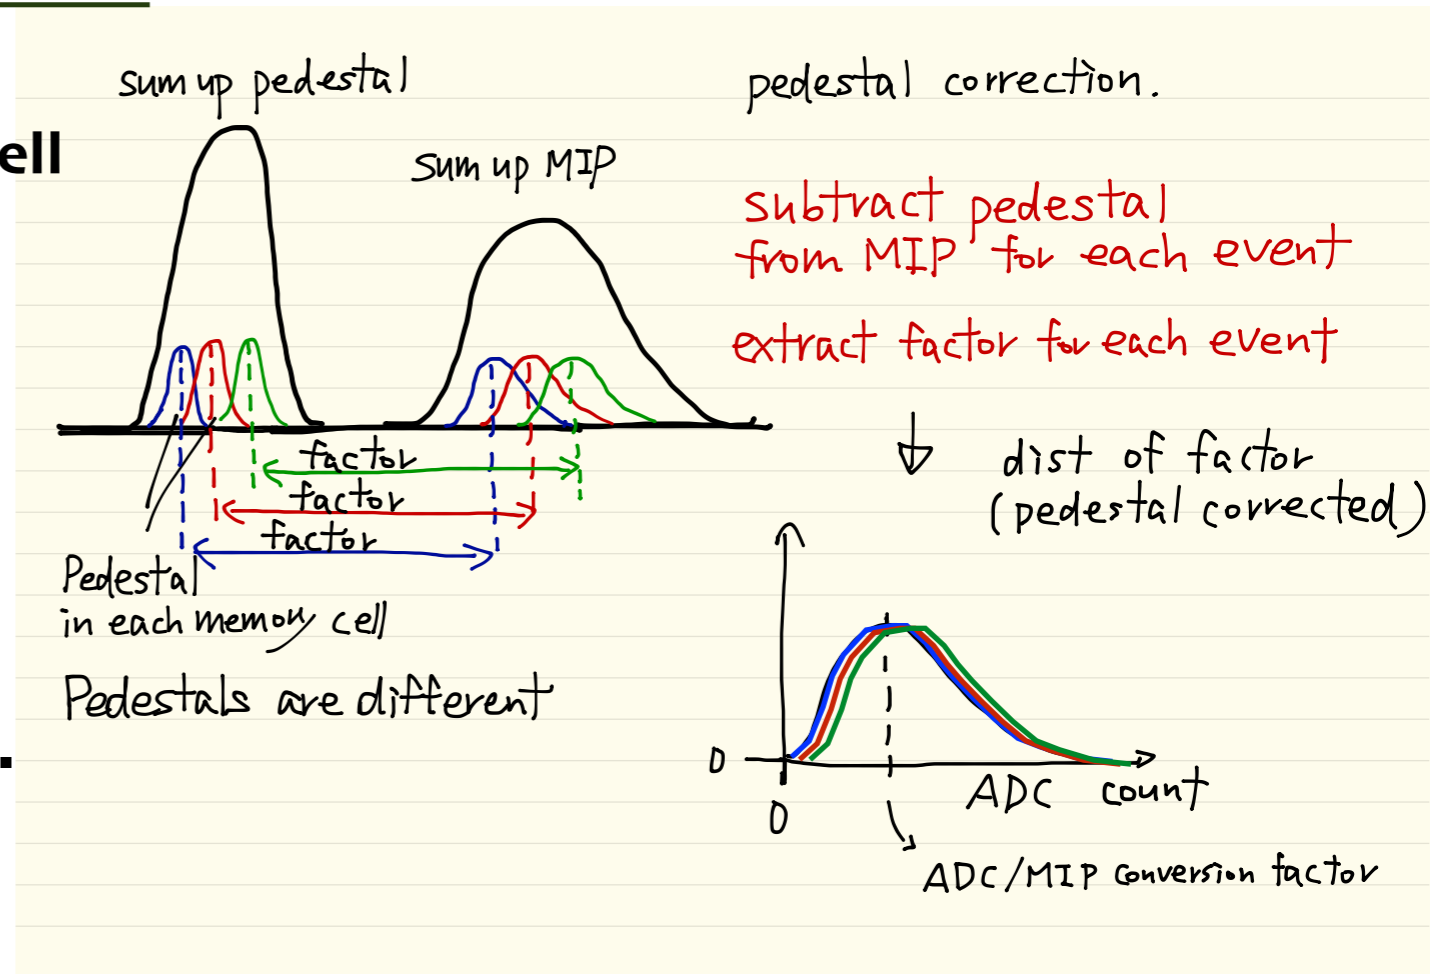 sum up pedestal
ell
sum up MIP
factor
factor
factor
Pedestal
in each memory cell
Pedestals are different
.
pedestal correction.
subtract pedestal
from MIP for each event
extract factor for each event
dist of factor
(pedestal corrected)
0
0
ADC count
ADC/MIP conversion factor